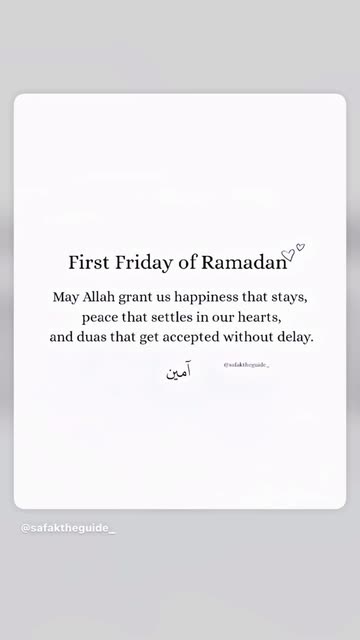 First Friday of Ramadan
May Allah grant us happiness that stays,
peace that settles in our hearts,
and duas that get accepted without delay.
آمين
@safaktheguide_
@safaktheguide_